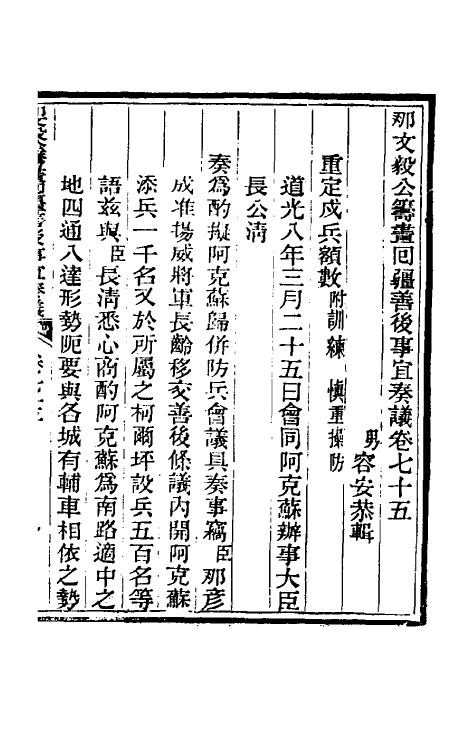 那文毅公籌畫回疆善後事宜奏議卷七十五
男容安恭輯
重定戍兵額數附訓練 慎重操防
道光八年三月二十五日會同阿克蘇辦事大臣
長公清
奏爲酌擬阿克蘇歸併防兵會議具奏事竊臣那彦
成准揚威將軍長齡移交善後條議內開阿克蘇
添兵一千名又於所屬之柯爾坪設兵五百名等
語茲與臣長清悉心商酌阿克蘇爲南路適中之
地四通八達形勢阨要與各城有輔車相依之勢